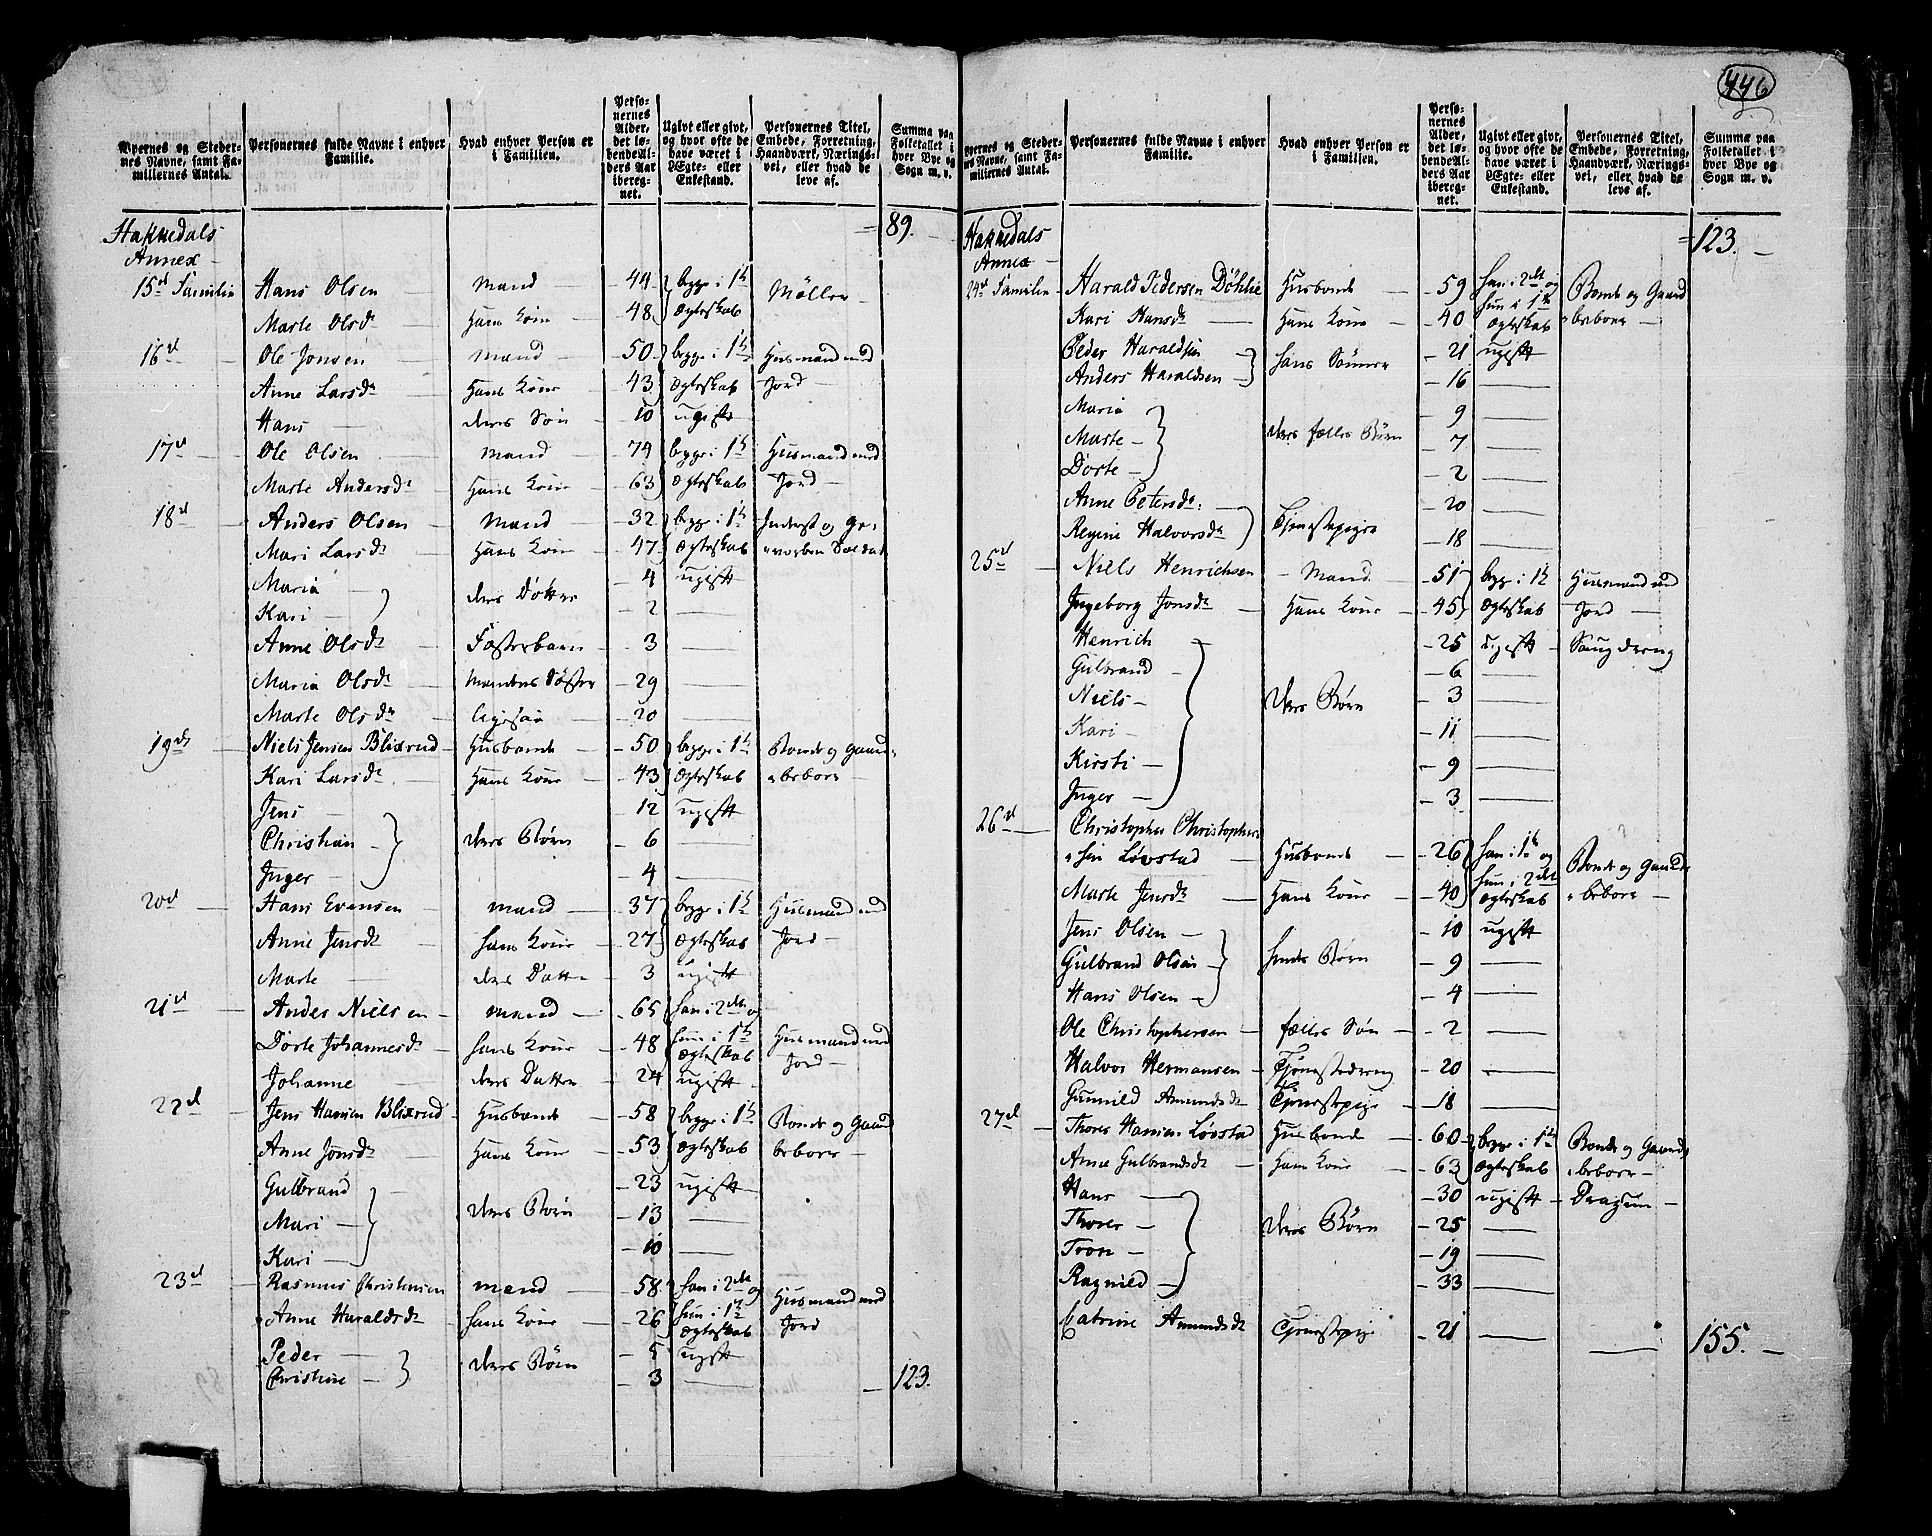 446
Byernes og Steder-
nes Navne, samt Fa-
miliernes Antal.
Personernes fulde Navne i enhver
Familie.
Hvad enhver Person er
i Familien.
Perso-
nernes
Alder,
det lø-
bende Al-
ders Aar
iberег-
net.
Ugivt eller givt,
og hvor ofte de
have været i
Ægte- eller
Enkestand.
Personernes Titel,
Embede, Forretning,
Haandværk, Nærings-
vei, eller hvad de
leve af.
Summa paa
Folketallet i
hver Bye og
Sogn m. v.
Hakkedals 89.
Annex
15d Familie Hans Olsen mand 44 begge i 1te Møller
Marte Olsdr Hans Kone 48 Ægteskab
16d Ole Jonsen mand 50 begge i 1te Husmand med
Anne Larsdr Hans Kone 43 Ægteskab Jord
Hans deres Søn 10 ugift
17d Ole Olsen mand 74 begge i 1te Husmand med
Marte Andersdr Hans Kone 63 Ægteskab Jord
18d Anders Olsen mand 32 begge i 1te Inderst og Ge-
Mari Larsdr Hans Kone 47 Ægteskab worben Soldat
Maria deres Døttre 4 ugift
Kari 2
Anne Olsdr Fosterbarn 3
Maria Olsdr Mandens Søster 29
Marte Olsdr ligesaa 20
19de Niels Jensen Blixrud Husbonde 50 begge i 1te Bonde og Gaard-
Kari Larsdr Hans Kone 43 Ægteskab beboer
Jens 12 ugift
Christian deres Børn 6
Inger 4
20d Hans Evensen mand 37 begge i 1te Husmand med
Anne Jensdr hans Kone 27 Ægteskab Jord
Marte deres Datter 3 ugift
21d Anders Nielsen mand 65 han i 2det og
Dorte Johannesdr hans Kone 48 hun i 1te Husmand med
Ægteskab Jord
Johanne deres Datter 24 ugift
22d Jens Hansen Blixrud Husbonde 58 begge i 1te Bonde og Gaard
Anne Jonsdr Hans Kone 53 Ægteskab beboer
Gulbrand 23 ugift
Mari deres Børn 13
Kari 10
23d Rasmus Christensen mand 58 han i 2det og
Anne Haraldsdr hans Kone 26 hun i 1te Husmand med
Ægteskab Jord
Peder deres Børn 5 ugift
Christine 3 123.
Byernes og Steder-
nes Navne, samt Fa-
miliernes Antal.
Personernes fulde Navne i enhver
Familie.
Hvad enhver Person er
i Familien.
Perso-
nernes
Alder,
det lø-
bende Al-
ders Aar
ibereg-
net.
Ugivt eller givt,
og hvor ofte de
have været i
Ægte- eller
Enkestand.
Personernes Titel,
Embede, Forretning,
Haandværk, Nærings-
vei, eller hvad de
leve af.
Summa paa
Folketallet i
hver Bye og
Sogn m. v.
Hakkedals 123.
Annex
24d Familie Harald Pedersen Döhlie Husbonde 59 han i 2det og Bonde og Gaard
hun i 1te beboer
Kari Hansdr Hans Kone 40 Ægteskab
Peder Haraldsen hans Sønner 21 ugift
Anders Haraldsen 16
Maria 9
Marte deres fælles Børn 7
Dorte 2
Anne Petersdr 20
Regine Halvorsdr Tjenestepiger 18
25d Niels Henrichsen Mand 51 begge i 1te Husmand med
Ingeborg Jonsdr Hans Kone 45 Ægteskab Jord
Henrich 25 ugift
Gulbrand 6
Niels deres Børn 3
Kari 11
Kirsti 9
Inger 3
26d Christopher Christopher-
sen Lövstad Husbonde 26 han i 1te og Bonde og Gaard-
hun i 2det beboer
Marte Jensdr Hans Kone 40 Ægteskab
Jens Olsen 10 ugift
Gulbrand Olsen hendes Børn 9
Hans Olsen 4
Ole Christophersen fælles Søn 2
Halvor Hermansen Tjenestedreng 20
Gunnild Amundsdr Tjenestepige 18
27d Thorer Hansen Lövstad Husbonde 60 begge i 1te Bonde og Gaard-
Anne Gulbrandsdr Hans Kone 63 Ægteskab beboer
Hans 30 ugift Dragun
Thorer deres Børn 25
Tron 19
Ragnild 33
Catrine Amundsdr Tjenestepige 21 155.